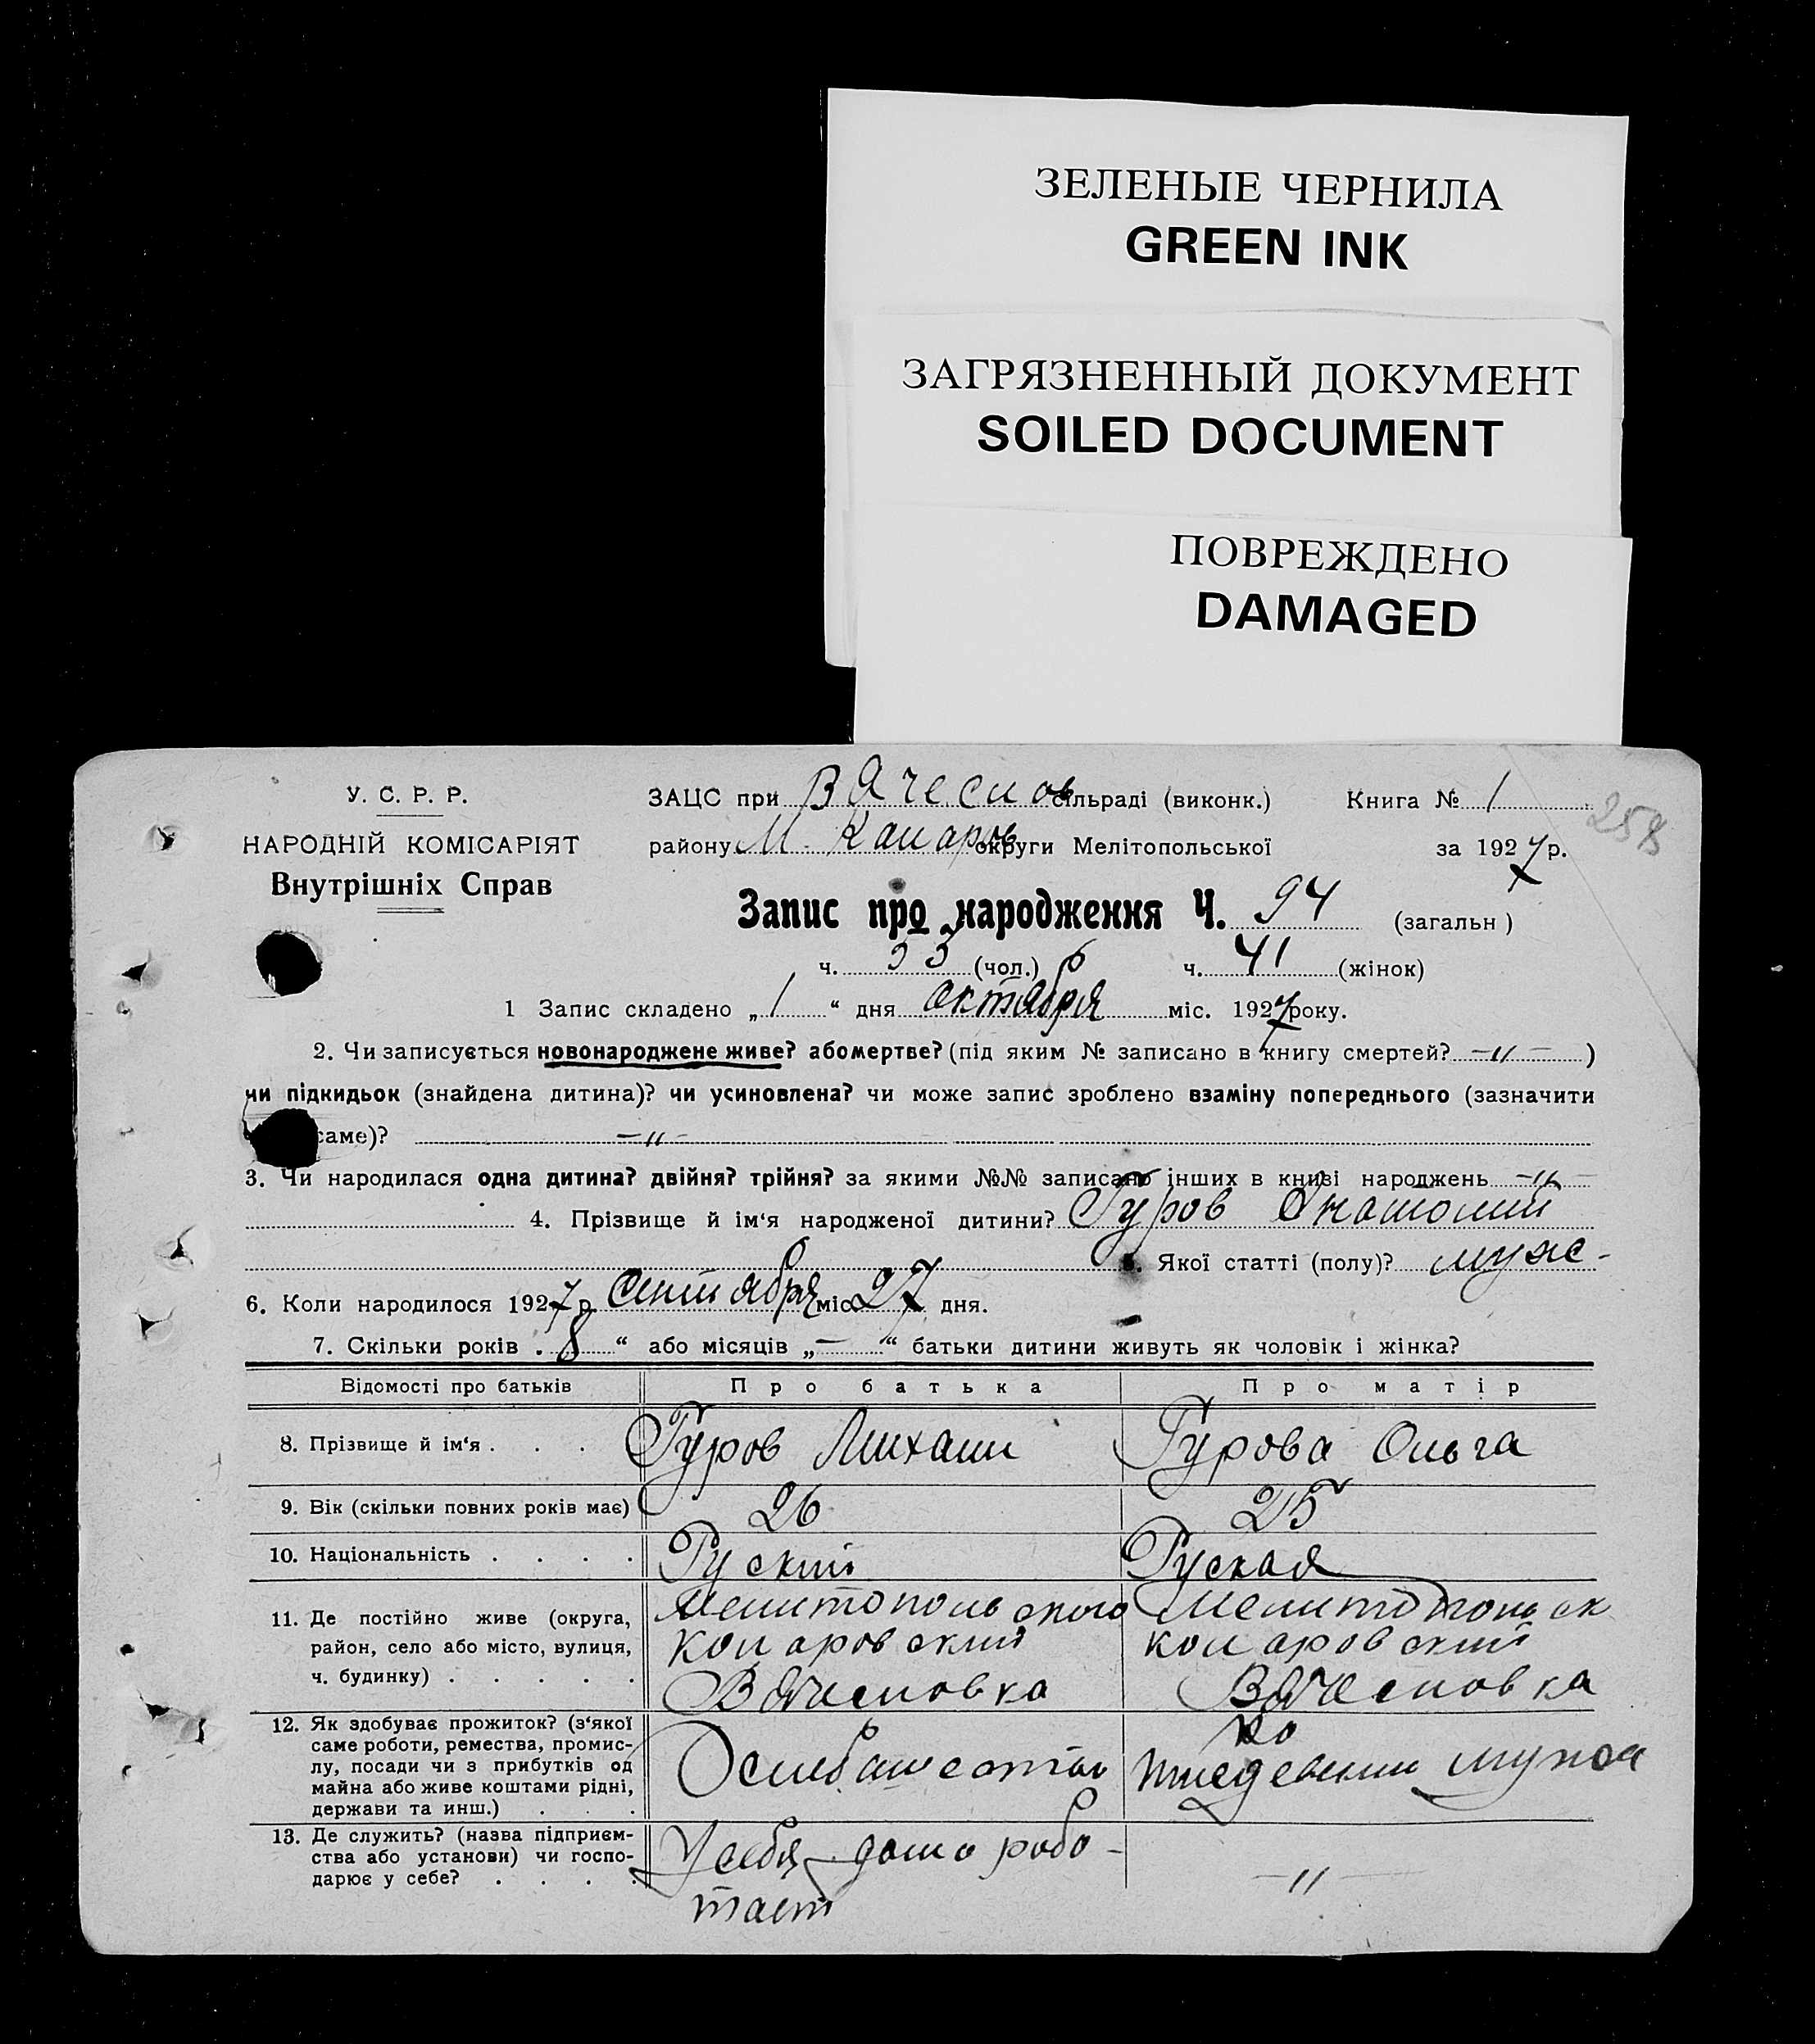 ЗЕЛЕНЫЕ ЧЕРНИЛА
GREEN INK
ЗАГРЯЗНЕННЫЙ ДОКУМЕНТ
SOILED DOCUMENT
ПОВРЕЖДЕНО
DAMAGED
У. С. Р. Р.
НАРОДНІЙ КОМІСАРІЯТ
Внутрішніх Справ
ЗАЦС при Вячеслов сільраді (виконк.) Книга № 1
258
району М. округи Мелітопольської за 1927 р.
Запис про народження Ч. 94 (загальн)
ч. 53 (чол.) ч. 41 (жінок)
1 Запис складено „ 1 “ дня октября міс. 1927 року.
2. Чи записується новонароджене живе? або мертве? (під яким № записано в книгу смертей? -"- )
чи підкидьок (знайдена дитина)? чи усиновлена? чи може запис зроблено взаміну попереднього (зазначити
саме)? -"-
3. Чи народилася одна дитина? двійня? трійня? за якими №№ записано інших в книзі народжень -"-
4. Прізвище й ім‘я народженої дитини? Гуров Анатолий
5. Якої статті (полу)? муж-
6. Коли народилося 1927 р. Сентября міс. 27 дня.
7. Скільки років . 8 “ або місяців „ — “ батьки дитини живуть як чоловік і жінка?
Відомості про батьків Про батька Про матір
8. Прізвище й ім‘я . . . Гуров Михаил Гурова Ольга
9. Вік (скільки повних років має) 26 25
10. Національність . . . . Руский Руская
11. Де постійно живе (округа, Мелитопольского Мелитопольск
район, село або місто, вулиця, коларовский коларовский
ч. будинку) . . . . . Вячесловка Вячесловка
12. Як здобуває прожиток? (з‘якої
саме роботи, ремества, промис-
лу, посади чи з прибутків од
майна або живе коштами рідні, мужа
держави та инш.) . . .
13. Де служить? (назва підприєм-
ства або установи) чи госпо- У себя дома рабо- -"-
дарює у себе? . . . . тает